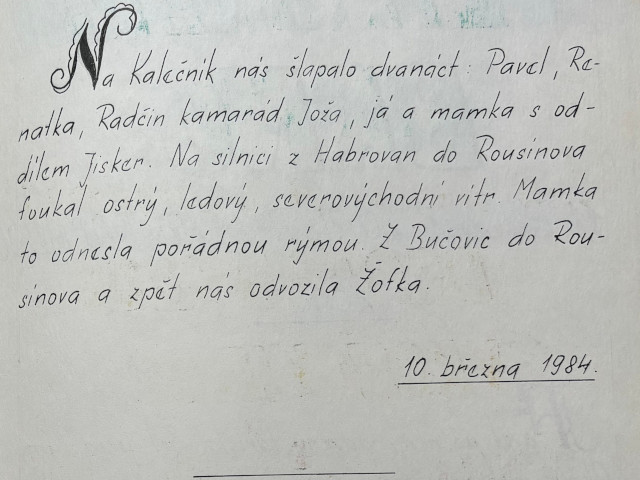 Na Kalečník nás šlapalo dvanáct: Pavel, Re-
natka, Radčin kamarád Joža, já a mamka s od-
dílem Jisker. Na silnici z Habrovan do Rousínova
foukal ostrý, ledový, severovýchodní vítr. Mamka
to odnesla pořádnou rýmou. Z Bučovic do Rou-
sínova a zpět nás odvozila Žofka.
10. března 1984.